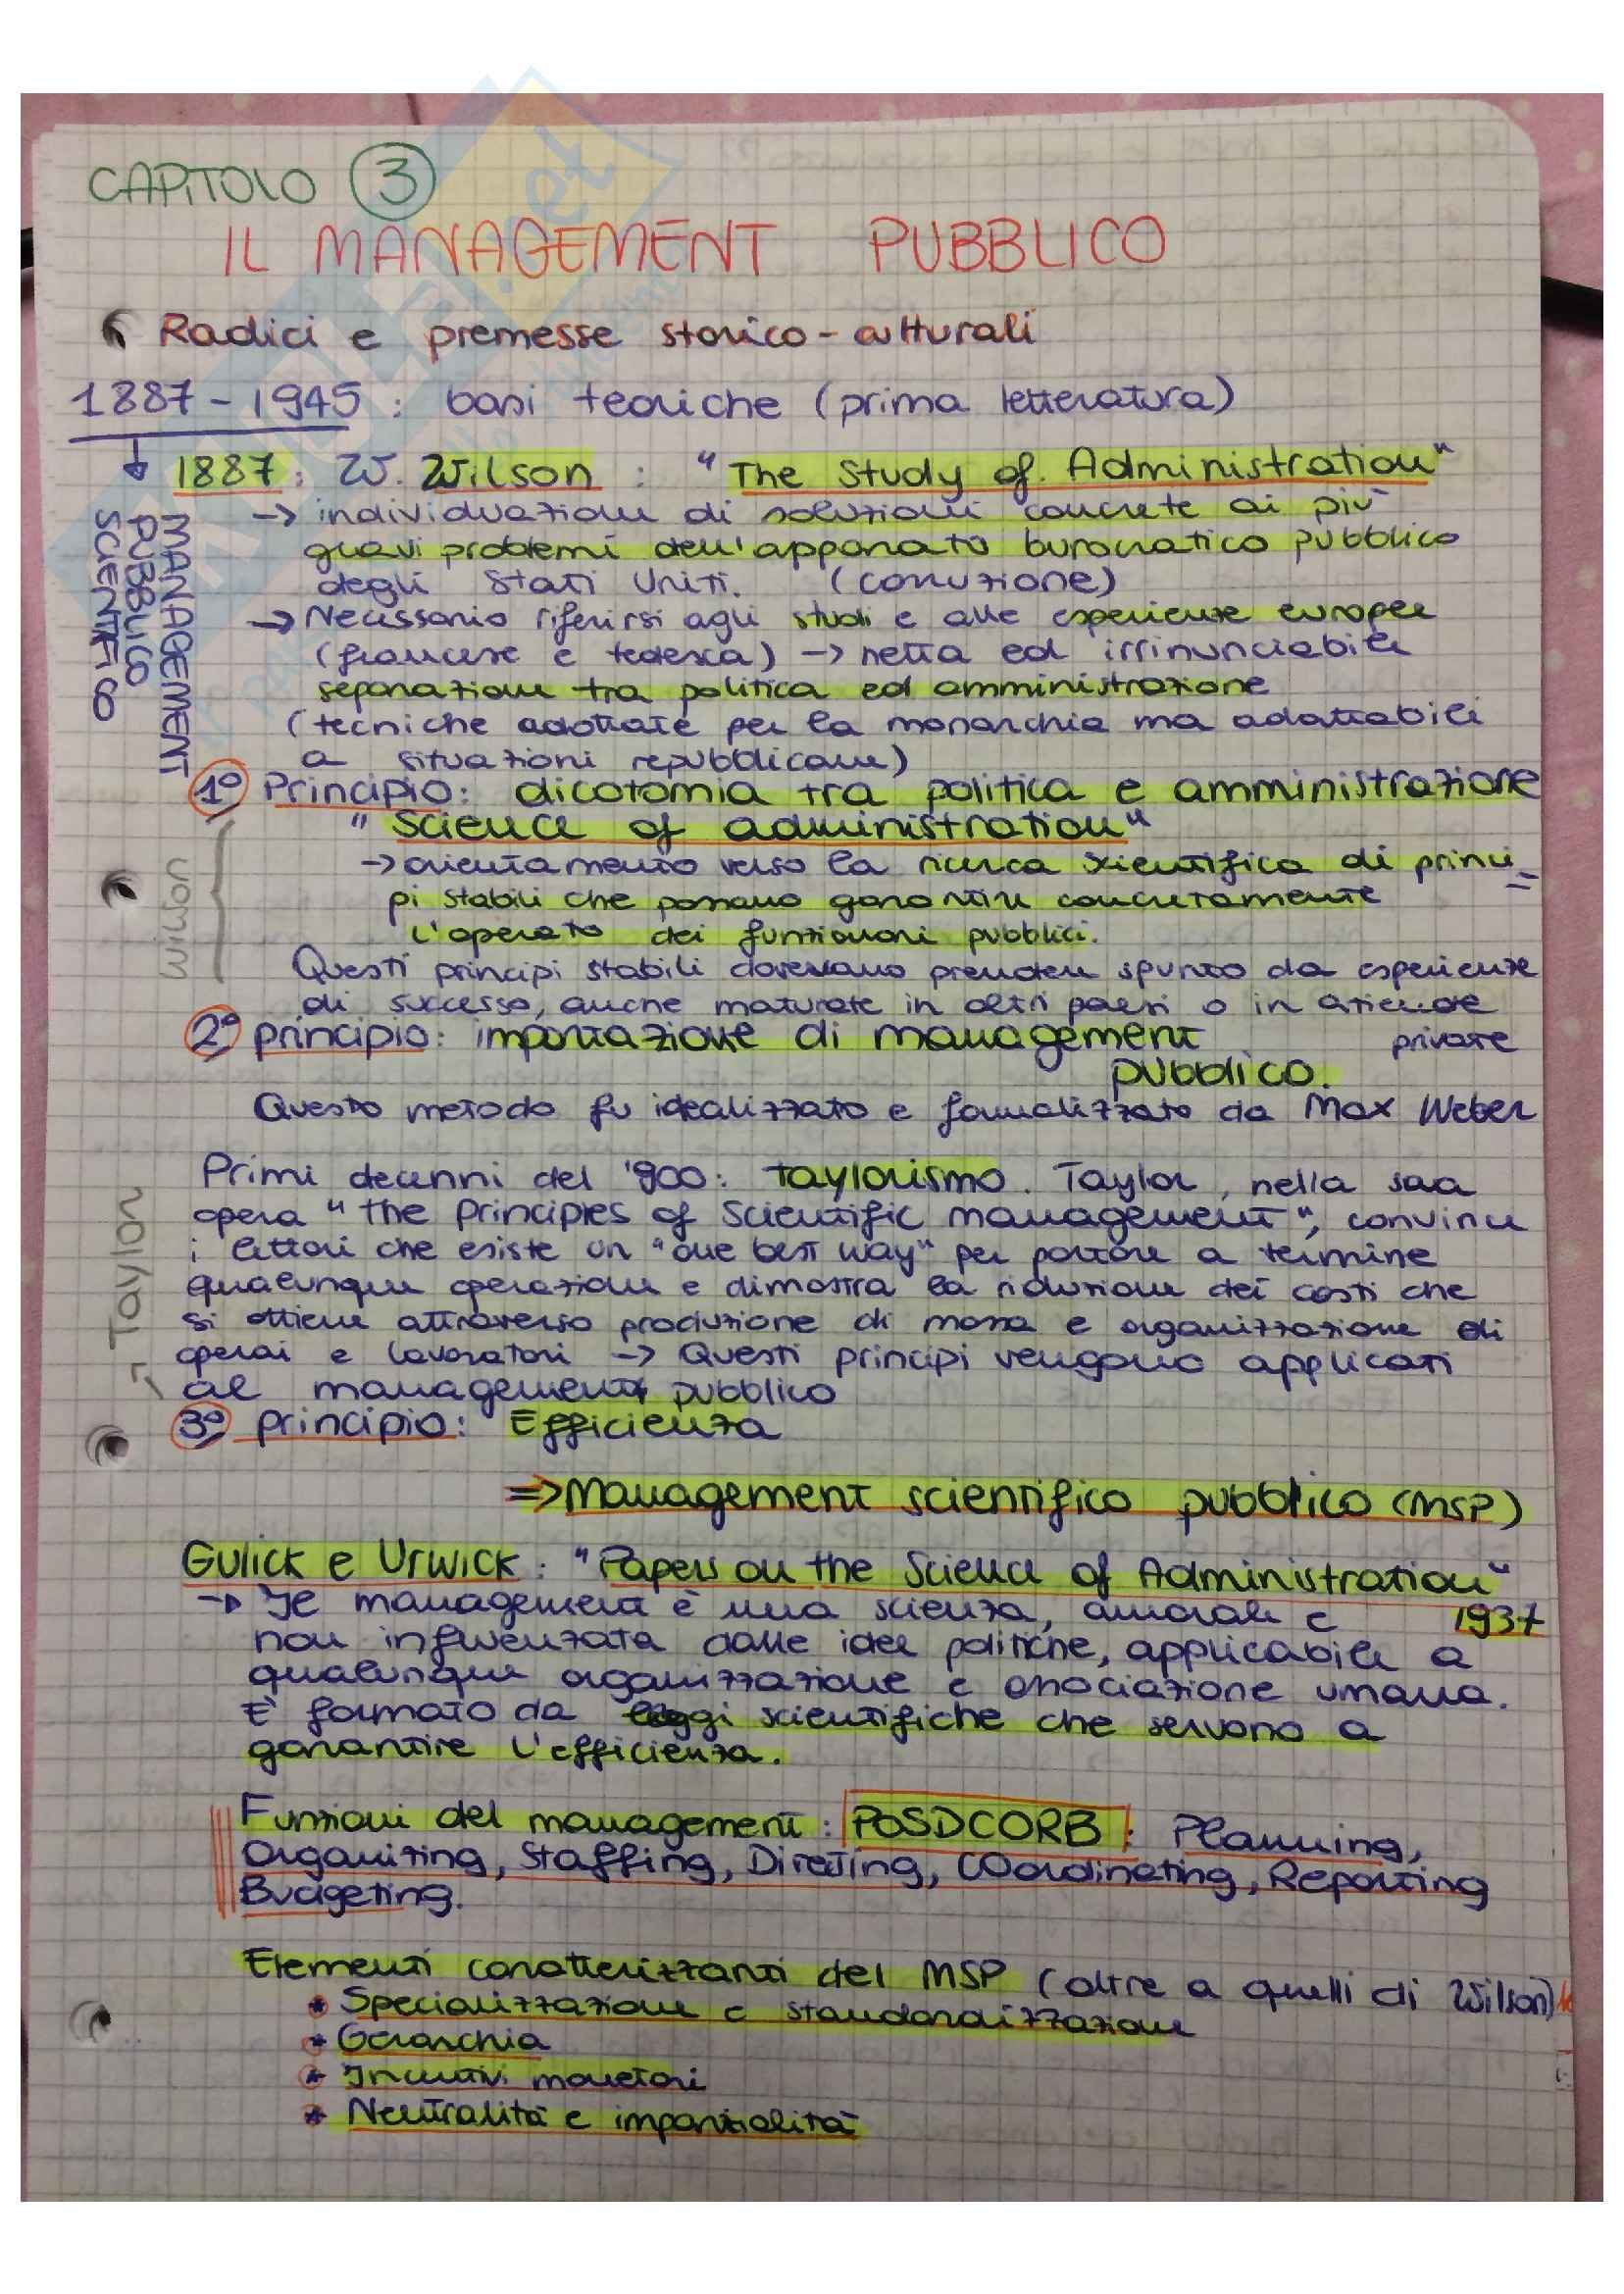 CAPITOLO 3
IL MANAGEMENT PUBBLICO
Radici e premesse storico-culturali
1887-1945: basi teoriche (prima letteratura)
1887: W. Wilson: "The Study of Administration"
→ individuazione di soluzioni concrete ai più
gravi problemi dell'apparato burocratico pubblico
degli Stati Uniti. (corruzione)
→ Necessario riferirsi agli studi e alle esperienze europee
(francese e tedesca) → netta ed irrinunciabile
separazione tra politica ed amministrazione
(tecniche adottate per la monarchia ma adattabili
a situazioni repubblicane)
MANAGEMENT
PUBBLICO
SCIENTIFICO
1° Principio: dicotomia tra politica e amministrazione
"Science of administration"
→ orientamento verso la ricerca scientifica di princi=
pi stabili che possano garantire concretamente
l'operato dei funzionari pubblici.
Wilson
Questi principi stabili dovevano prendere spunto da esperienze
di successo, anche maturate in altri paesi o in aziende
private
2° principio: importazione di management
pubblico.
Questo metodo fu idealizzato e formalizzato da Max Weber
Primi decenni del '900: taylorismo. Taylor, nella sua
opera "the Principles of Scientific management", convince
i lettori che esiste un "one best way" per portare a termine
qualunque operazione e dimostra la riduzione dei costi che
si ottiene attraverso produzione di massa e organizzazione di
operai e lavoratori → Questi principi vengono applicati
al management pubblico
→ Taylor
3° principio: Efficienza
⇒ Management scientifico pubblico (MSP)
Gulick e Urwick: "Papers on the Science of Administration"
1937
→ Il management è una scienza, amorale e
non influenzata dalle idee politiche, applicabile a
qualunque organizzazione e associazione umana.
È formato da leggi scientifiche che servono a
garantire l'efficienza.
Funzioni del management: POSDCORB: Planning,
Organizing, Staffing, Directing, COordinating, Reporting
Budgeting.
Elementi caratterizzanti del MSP (oltre a quelli di Wilson)
* Specializzazione e standardizzazione
* Gerarchia
* Incentivi monetari
* Neutralità e imparzialità